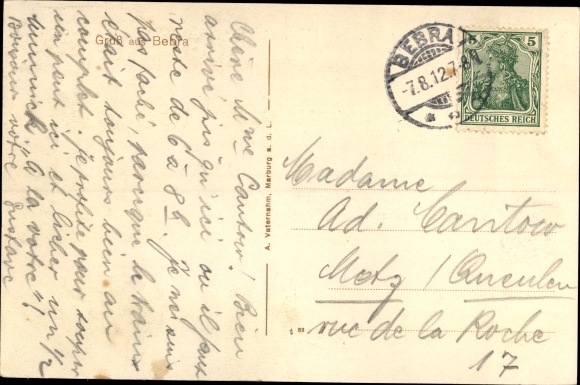 Gruß aus Bebra
Chère Mme Cantow! Bien
arrivé jusqu'ici où il faut
rester de 6 à 8 h. Je ne suis
pas faché, parceque le train
était toujours bien au
complet. Je profite pour
un peut ici et un 1/2
"à la votre"!
Bonjour votre Gustave
A. Vaternahm, Marburg a. d. L.
BEBRA
-7.8.12.7-8N
5
DEUTSCHES REICH
Madame
Ad. Cantow
Metz / Queuleu
rue de la Roche
17